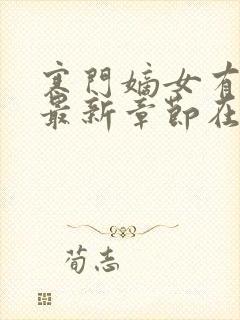 寒门嫡女有
最新章节在
荀志